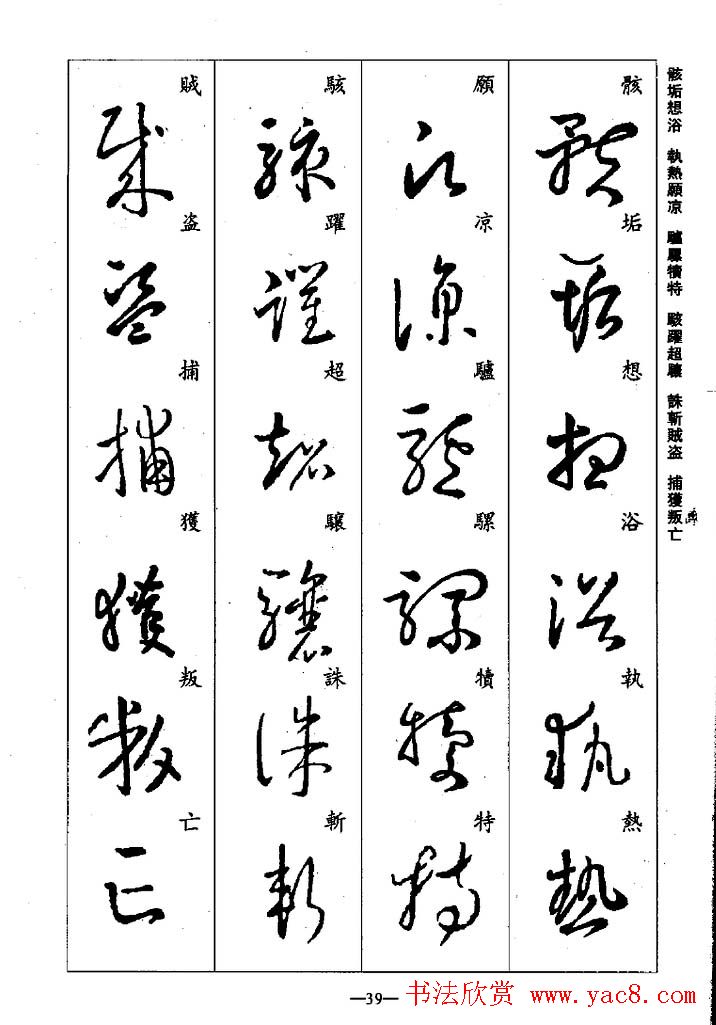 骸垢想浴 執熱願凉 驢騾犢特 駭躍超驤 誅斬賊盗 捕獲叛亡
骸垢想浴執熱
願凉驢騾犢特
駭躍超驤誅斬
賊盗捕獲叛亡
—39—
书法欣赏 www.yac8.com